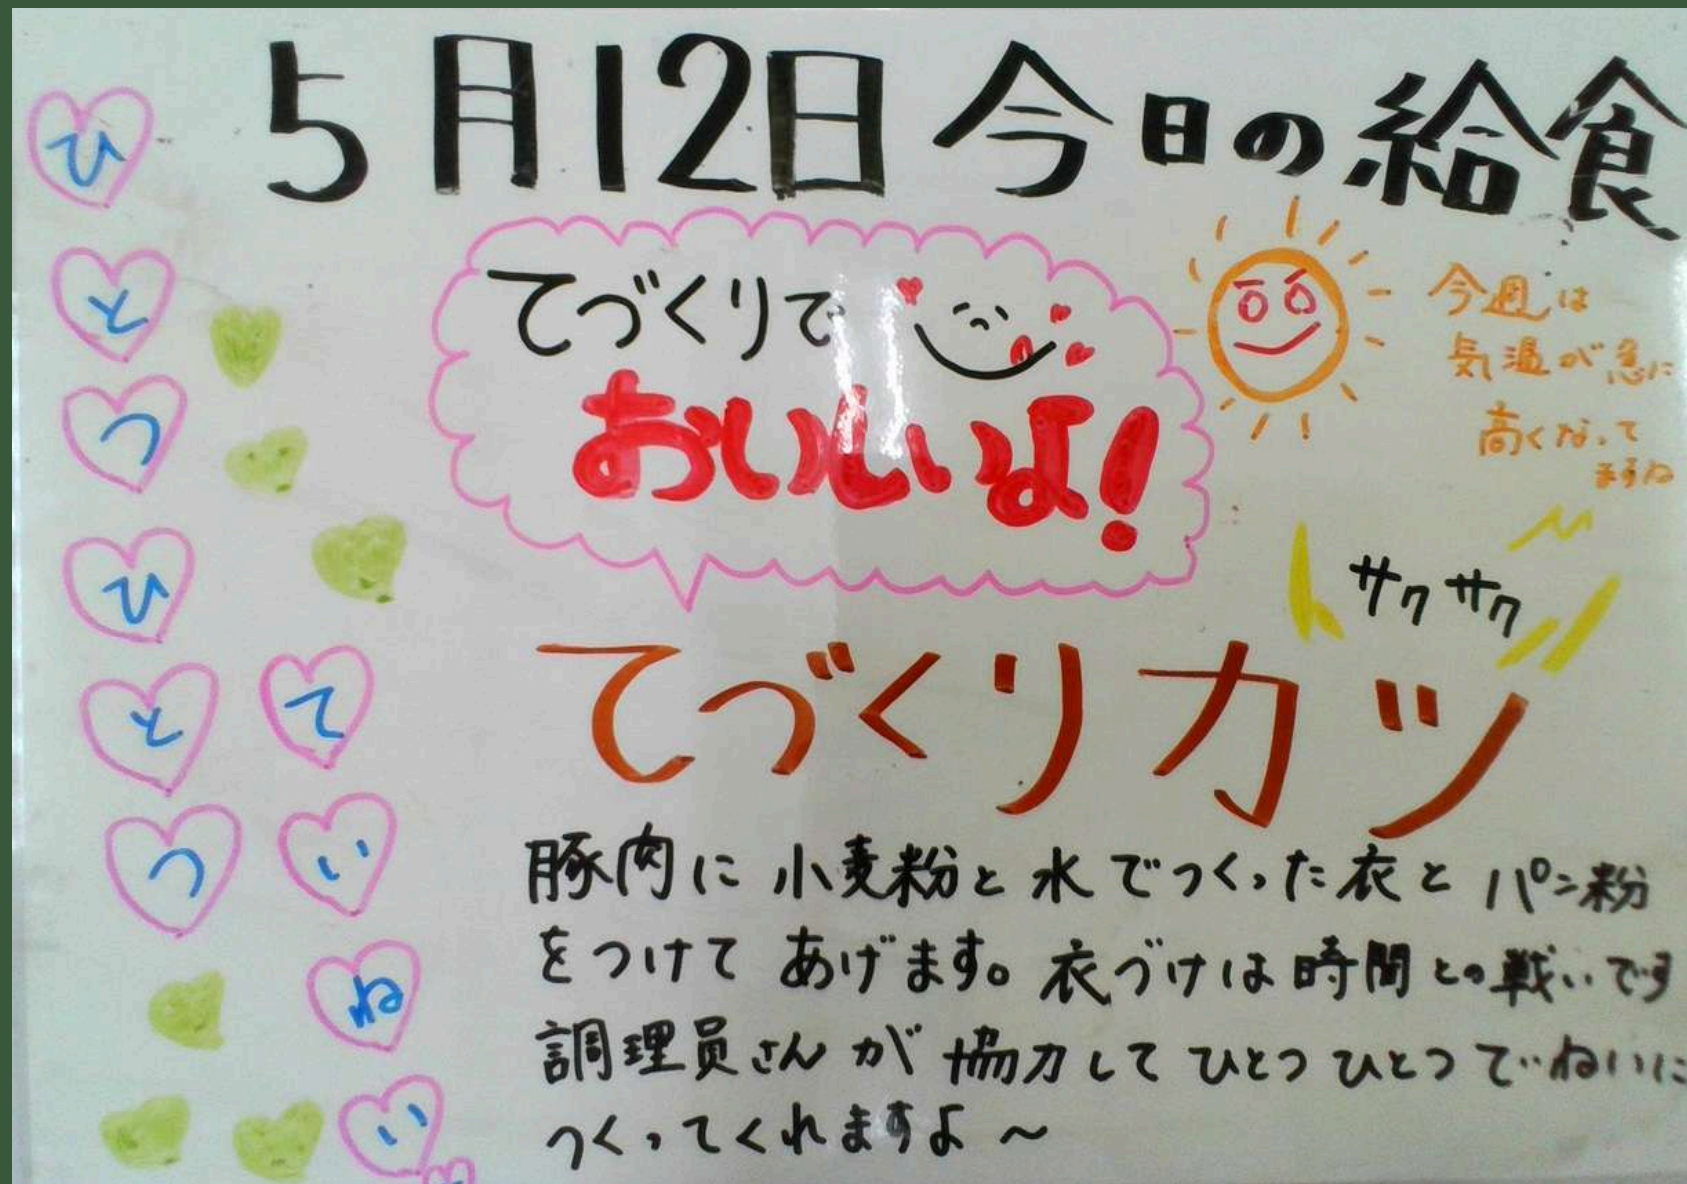 5月12日 今日の給食
てづくりで
おいしいよ!
今週は
気温が急に
高くなって
ますね
サクサク
てづくりカツ
豚肉に小麦粉と水でつくった衣とパン粉
をつけて あげます。衣づけは時間との戦いです
調理員さんが協力してひとつひとつていねいに
つくってくれますよ〜
ひとつひとつ
ていねい